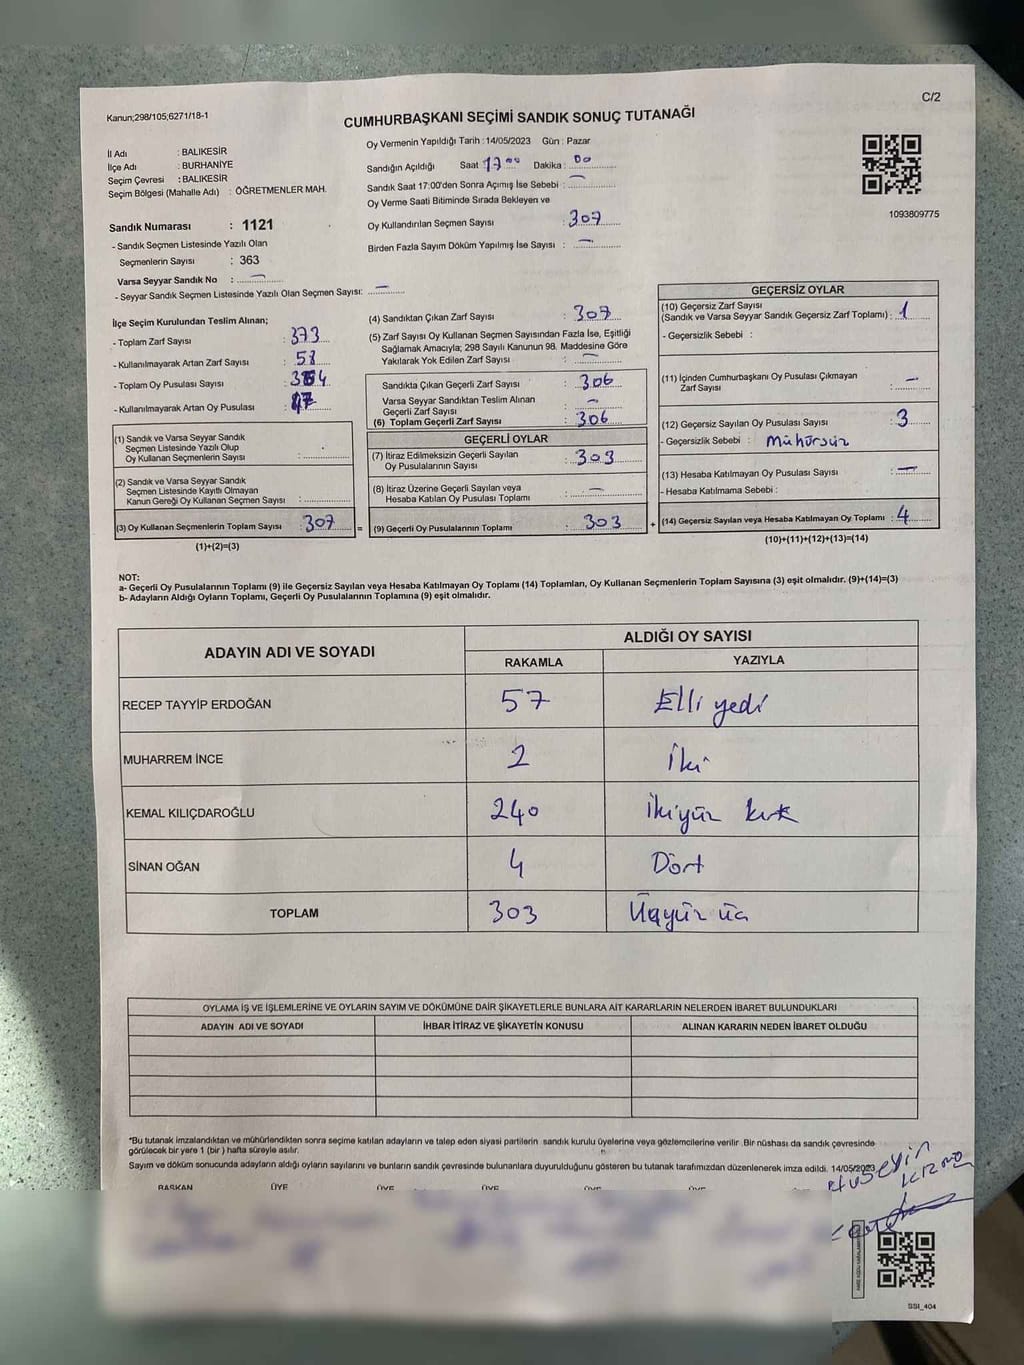 C/2
Kanun;298/105;6271/18-1
CUMHURBAŞKANI SEÇİMİ SANDIK SONUÇ TUTANAĞI
İl Adı : BALIKESİR
İlçe Adı : BURHANİYE
Seçim Çevresi : BALIKESİR
Seçim Bölgesi (Mahalle Adı) : ÖĞRETMENLER MAH.
Sandık Numarası : 1121
- Sandık Seçmen Listesinde Yazılı Olan
Seçmenlerin Sayısı : 363
Varsa Seyyar Sandık No : —
- Seyyar Sandık Seçmen Listesinde Yazılı Olan Seçmen Sayısı: —
Oy Vermenin Yapıldığı Tarih :14/05/2023 Gün : Pazar
Sandığın Açıldığı Saat 17 00 Dakika : 00
Sandık Saat 17:00'den Sonra Açımış İse Sebebi : —
Oy Verme Saati Bitiminde Sırada Bekleyen ve
Oy Kullandırılan Seçmen Sayısı : 307
Birden Fazla Sayım Döküm Yapılmış İse Sayısı : —
1093809775
İlçe Seçim Kurulundan Teslim Alınan;
- Toplam Zarf Sayısı : 373
- Kullanılmayarak Artan Zarf Sayısı :
- Toplam Oy Pusulası Sayısı :
- Kullanılmayarak Artan Oy Pusulası :
(1) Sandık ve Varsa Seyyar Sandık
Seçmen Listesinde Yazılı Olup
Oy Kullanan Seçmenlerin Sayısı :
(2) Sandık ve Varsa Seyyar Sandık
Seçmen Listesinde Kayıtlı Olmayan
Kanun Gereği Oy Kullanan Seçmen Sayısı :
(3) Oy Kullanan Seçmenlerin Toplam Sayısı : 307 =
(1)+(2)=(3)
(4) Sandıktan Çıkan Zarf Sayısı : 307
(5) Zarf Sayısı Oy Kullanan Seçmen Sayısından Fazla İse, Eşitliği
Sağlamak Amacıyla; 298 Sayılı Kanunun 98. Maddesine Göre
Yakılarak Yok Edilen Zarf Sayısı : —
Sandıkta Çıkan Geçerli Zarf Sayısı : 306
Varsa Seyyar Sandıktan Teslim Alınan
Geçerli Zarf Sayısı : —
(6) Toplam Geçerli Zarf Sayısı : 306
GEÇERLİ OYLAR
(7) İtiraz Edilmeksizin Geçerli Sayılan
Oy Pusulalarının Sayısı : 303
(8) İtiraz Üzerine Geçerli Sayılan veya
Hesaba Katılan Oy Pusulası Toplamı : —
(9) Geçerli Oy Pusulalarının Toplamı : 303 +
GEÇERSİZ OYLAR
(10) Geçersiz Zarf Sayısı
(Sandık ve Varsa Seyyar Sandık Geçersiz Zarf Toplamı) : 1
- Geçersizlik Sebebi :
(11) İçinden Cumhurbaşkanı Oy Pusulası Çıkmayan
Zarf Sayısı : —
(12) Geçersiz Sayılan Oy Pusulası Sayısı : 3
- Geçersizlik Sebebi : Mühürsüz
(13) Hesaba Katılmayan Oy Pusulası Sayısı : —
- Hesaba Katılmama Sebebi :
(14) Geçersiz Sayılan veya Hesaba Katılmayan Oy Toplamı : 4
(10)+(11)+(12)+(13)=(14)
NOT:
a- Geçerli Oy Pusulalarının Toplamı (9) ile Geçersiz Sayılan veya Hesaba Katılmayan Oy Toplamı (14) Toplamları, Oy Kullanan Seçmenlerin Toplam Sayısına (3) eşit olmalıdır. (9)+(14)=(3)
b- Adayların Aldığı Oyların Toplamı, Geçerli Oy Pusulalarının Toplamına (9) eşit olmalıdır.
ADAYIN ADI VE SOYADI ALDIĞI OY SAYISI
RAKAMLA YAZIYLA
RECEP TAYYİP ERDOĞAN 57 Elli yedi
MUHARREM İNCE 2 İki
KEMAL KILIÇDAROĞLU 240 İkiyüz kırk
SİNAN OĞAN 4 Dört
TOPLAM 303 Üçyüz üç
OYLAMA İŞ VE İŞLEMLERİNE VE OYLARIN SAYIM VE DÖKÜMÜNE DAİR ŞİKAYETLERLE BUNLARA AİT KARARLARIN NELERDEN İBARET BULUNDUKLARI
ADAYIN ADI VE SOYADI İHBAR İTİRAZ VE ŞİKAYETİN KONUSU ALINAN KARARIN NEDEN İBARET OLDUĞU
*Bu tutanak imzalandıktan ve mühürlendikten sonra seçime katılan adayların ve talep eden siyasi partilerin sandık kurulu üyelerine veya gözlemcilerine verilir .Bir nüshası da sandık çevresinde
görülecek bir yere 1 (bir ) hafta süreyle asılır.
Sayım ve döküm sonucunda adayların aldığı oyların sayılarını ve bunların sandık çevresinde bulunanlara duyurulduğunu gösteren bu tutanak tarafımızdan düzenlenerek imza edildi. 14/05/2023
BAŞKAN ÜYE ÜYE ÜYE ÜYE ÜYE
Huseyin
SSI_404